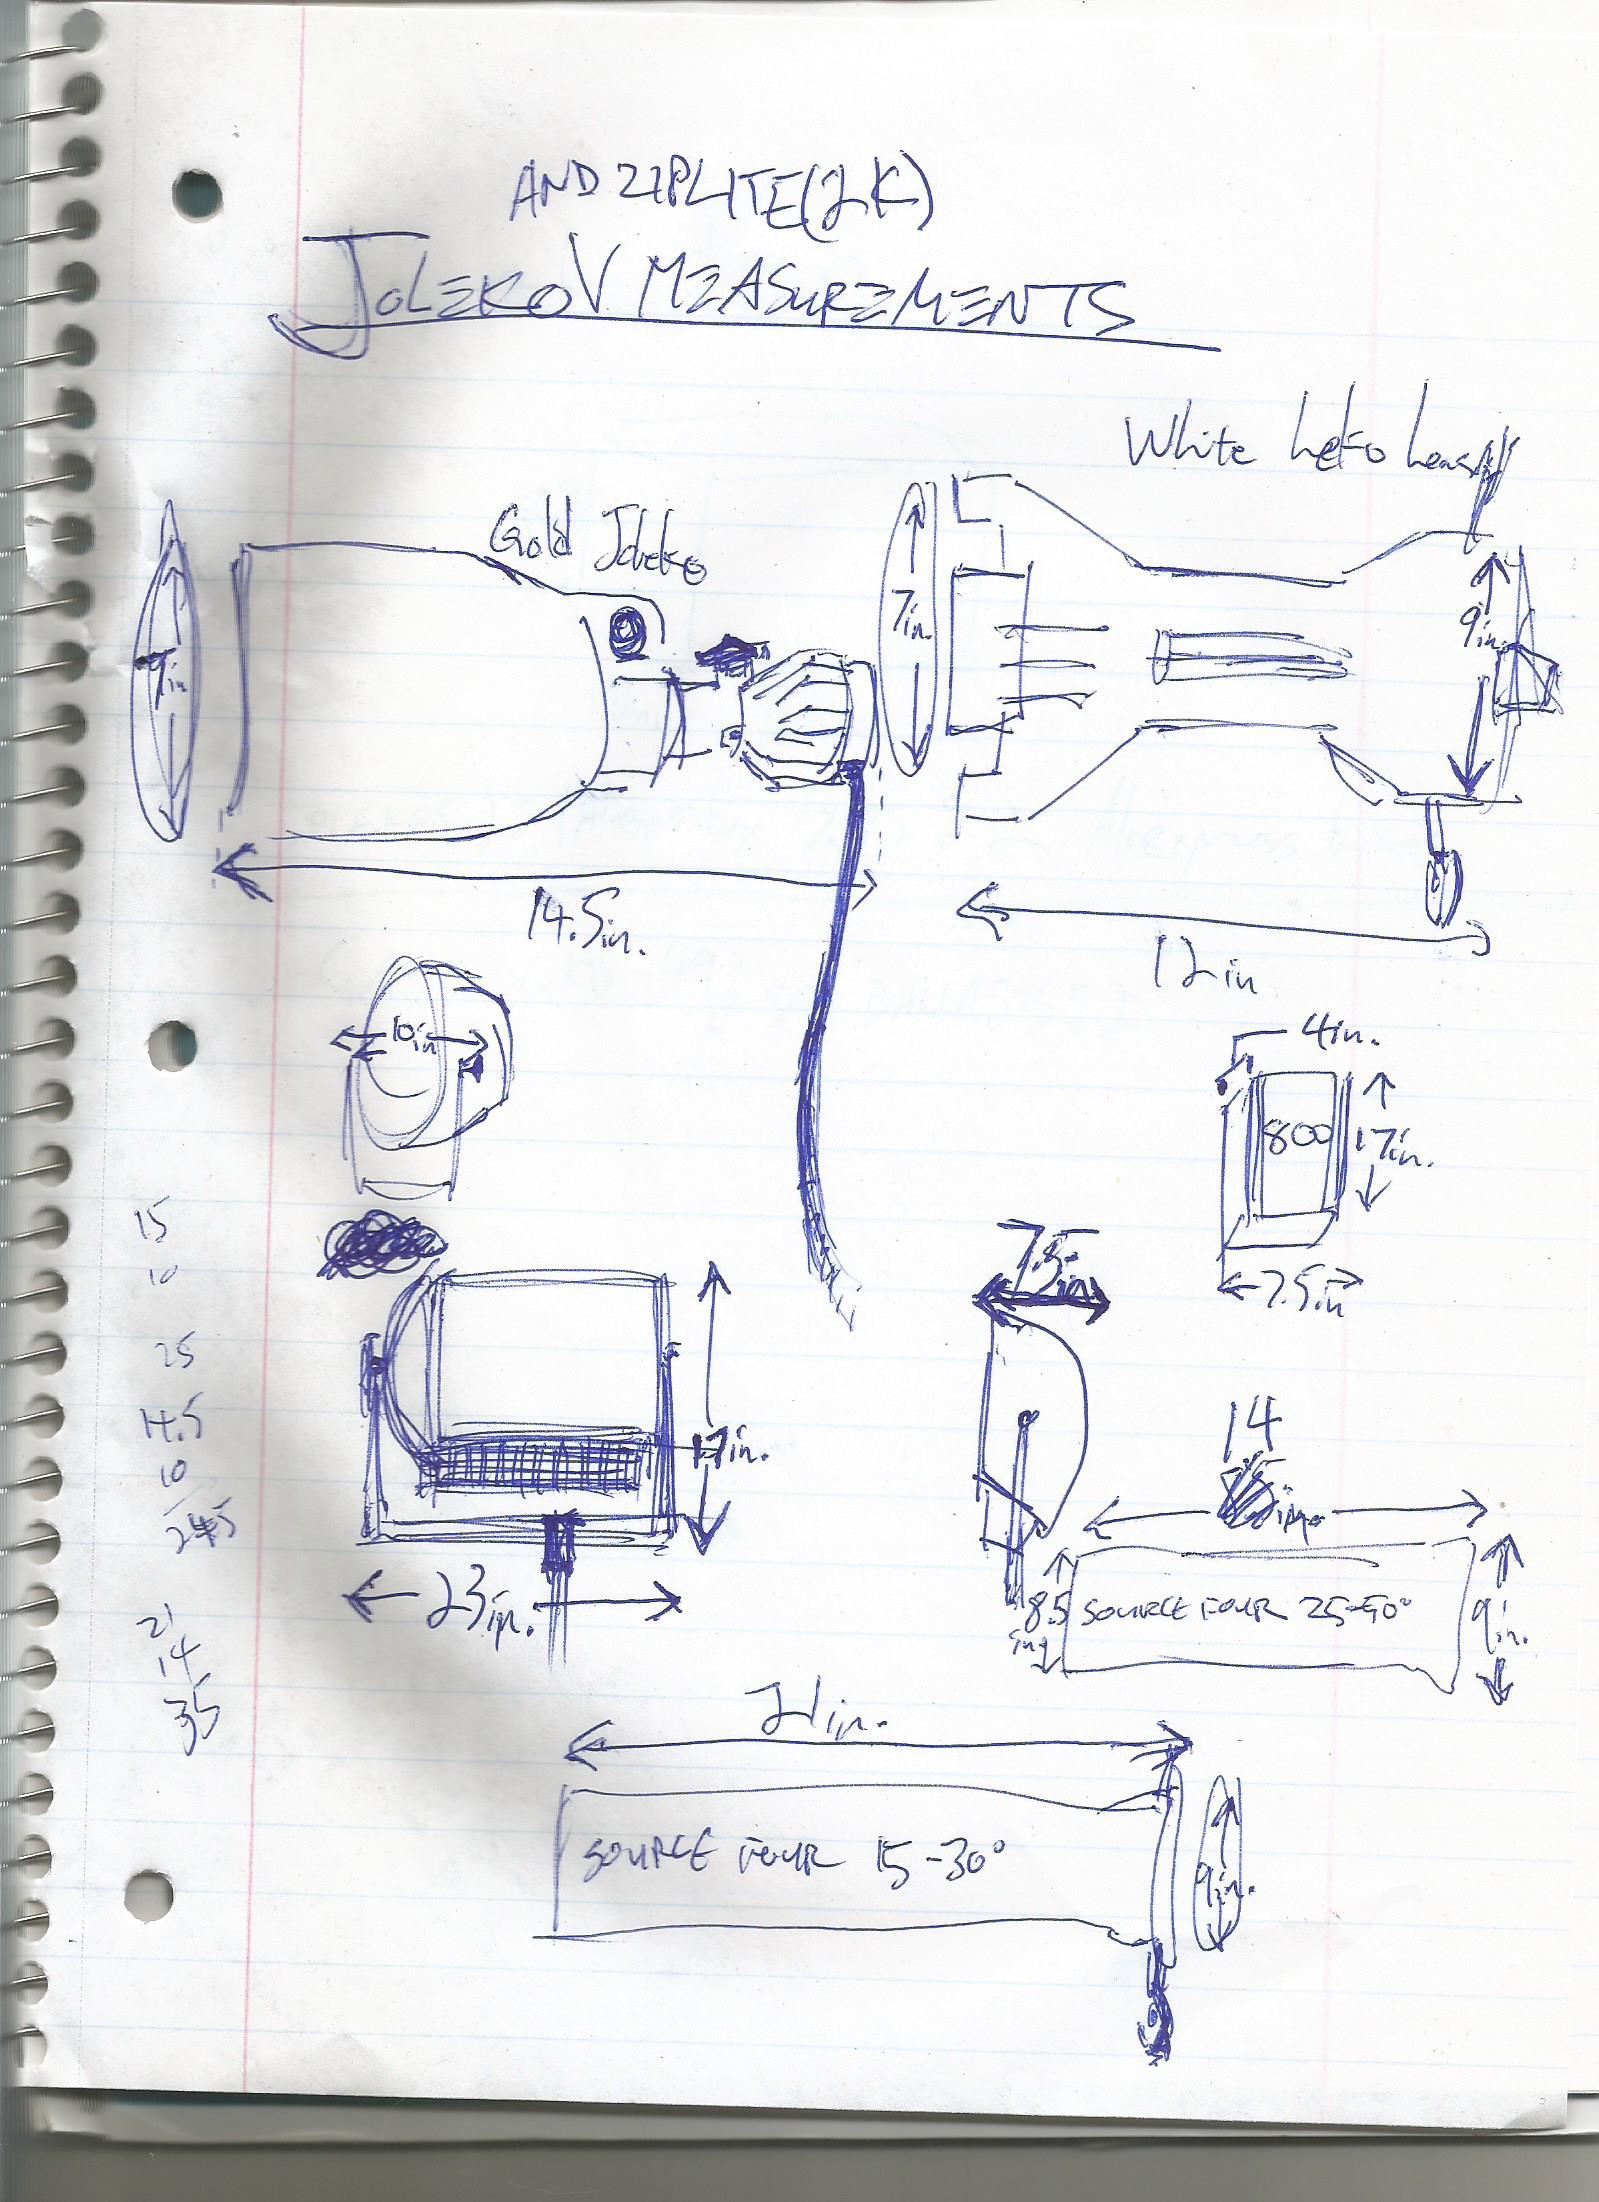 AND ZIPLITE (2K)
JOLEKO V MEASUREMENTS
White Leko
Gold Joleko
7in.
9in.
9in
14.5in.
12in
10in
4in.
800
17in.
7.5in
15
10
25
14.5
10
24.5
21
14
35
7.5in
17in.
23in.
14
in.
8.5
in
SOURCE FOUR 25-50°
9in.
21in.
SOURCE FOUR 15-30°
9in.